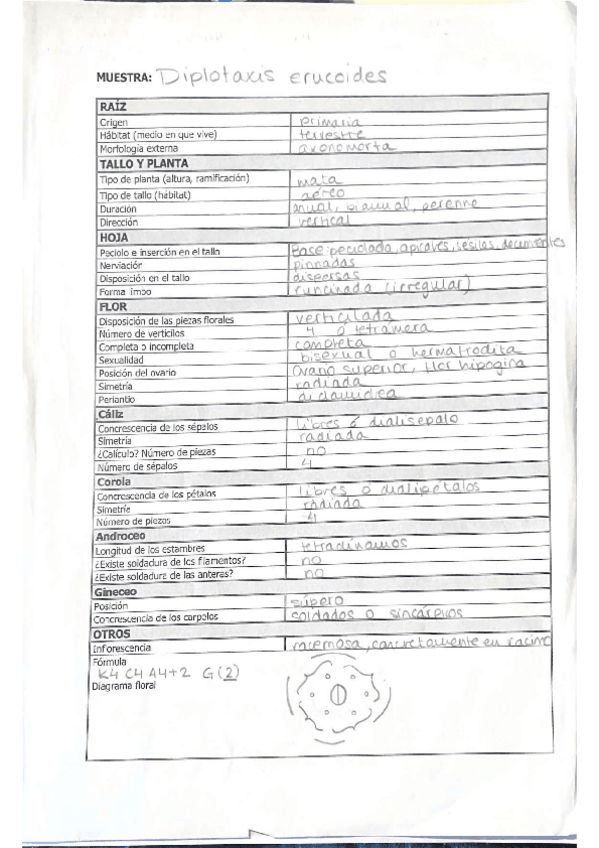 MUESTRA: Diplotaxis erucoides
RAÍZ
Origen primaria
Hábitat (medio en que vive) terrestre
Morfología externa axonomorfa
TALLO Y PLANTA
Tipo de planta (altura, ramificación) mata
Tipo de tallo (hábitat) aéreo
Duración anual, bianual, perenne
Dirección vertical
HOJA
Peciolo e inserción en el tallo Base: peciolada, sésiles,
Nerviación pinnadas
Disposición en el tallo dispersas
Forma limbo runcinada (irregular)
FLOR
Disposición de las piezas florales verticilada
Número de verticilos 4 o tetrámera
Completa o incompleta completa
Sexualidad bisexual o hermafrodita
Posición del ovario Ovario superior, flor hipogina
Simetría radiada
Periantio diclamídea
Cáliz
Concrescencia de los sépalos libres o dialisépalo
Simetría radiada
¿Calículo? Número de piezas no
Número de sépalos 4
Corola
Concrescencia de los pétalos libres o dialipétalos
Simetría radiada
Número de piezas 4
Androceo
Longitud de los estambres tetradínamos
¿Existe soldadura de los filamentos? no
¿Existe soldadura de las anteras? no
Gineceo
Posición súpero
Concrescencia de los carpelos soldados o sincárpicos
OTROS
Inforescencia racemosa, concretamente en racimo
Fórmula
K4 C4 A4+2 G(2)
Diagrama floral